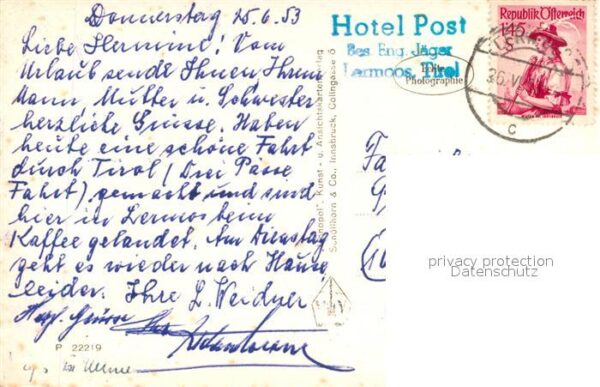 Donnerstag 25.6.53
Liebe Hermine! Vom
Urlaub sendt Ihnen, Ihrem
Mann, Mutter u. Schwester
herzliche Grüsse. Haben
heute eine schöne Fahrt
durch Tirol (Drei Pässe
Fahrt) gemacht und sind
hier in Lermoos beim
Kaffee gelandet. Am Dienstag
geht es wieder nach Hause,
leider. Ihre L. Weidner
Herzl. Grüsse
P 22219
Kunst- u. Ansichtskartenverlag
& Co., Innsbruck, Colingasse 6
Hotel Post
Bes. Eng. Jäger
Lermoos, Tirol
Echte
Photographie
Republik Österreich
1.45
C
privacy protection
Datenschutz